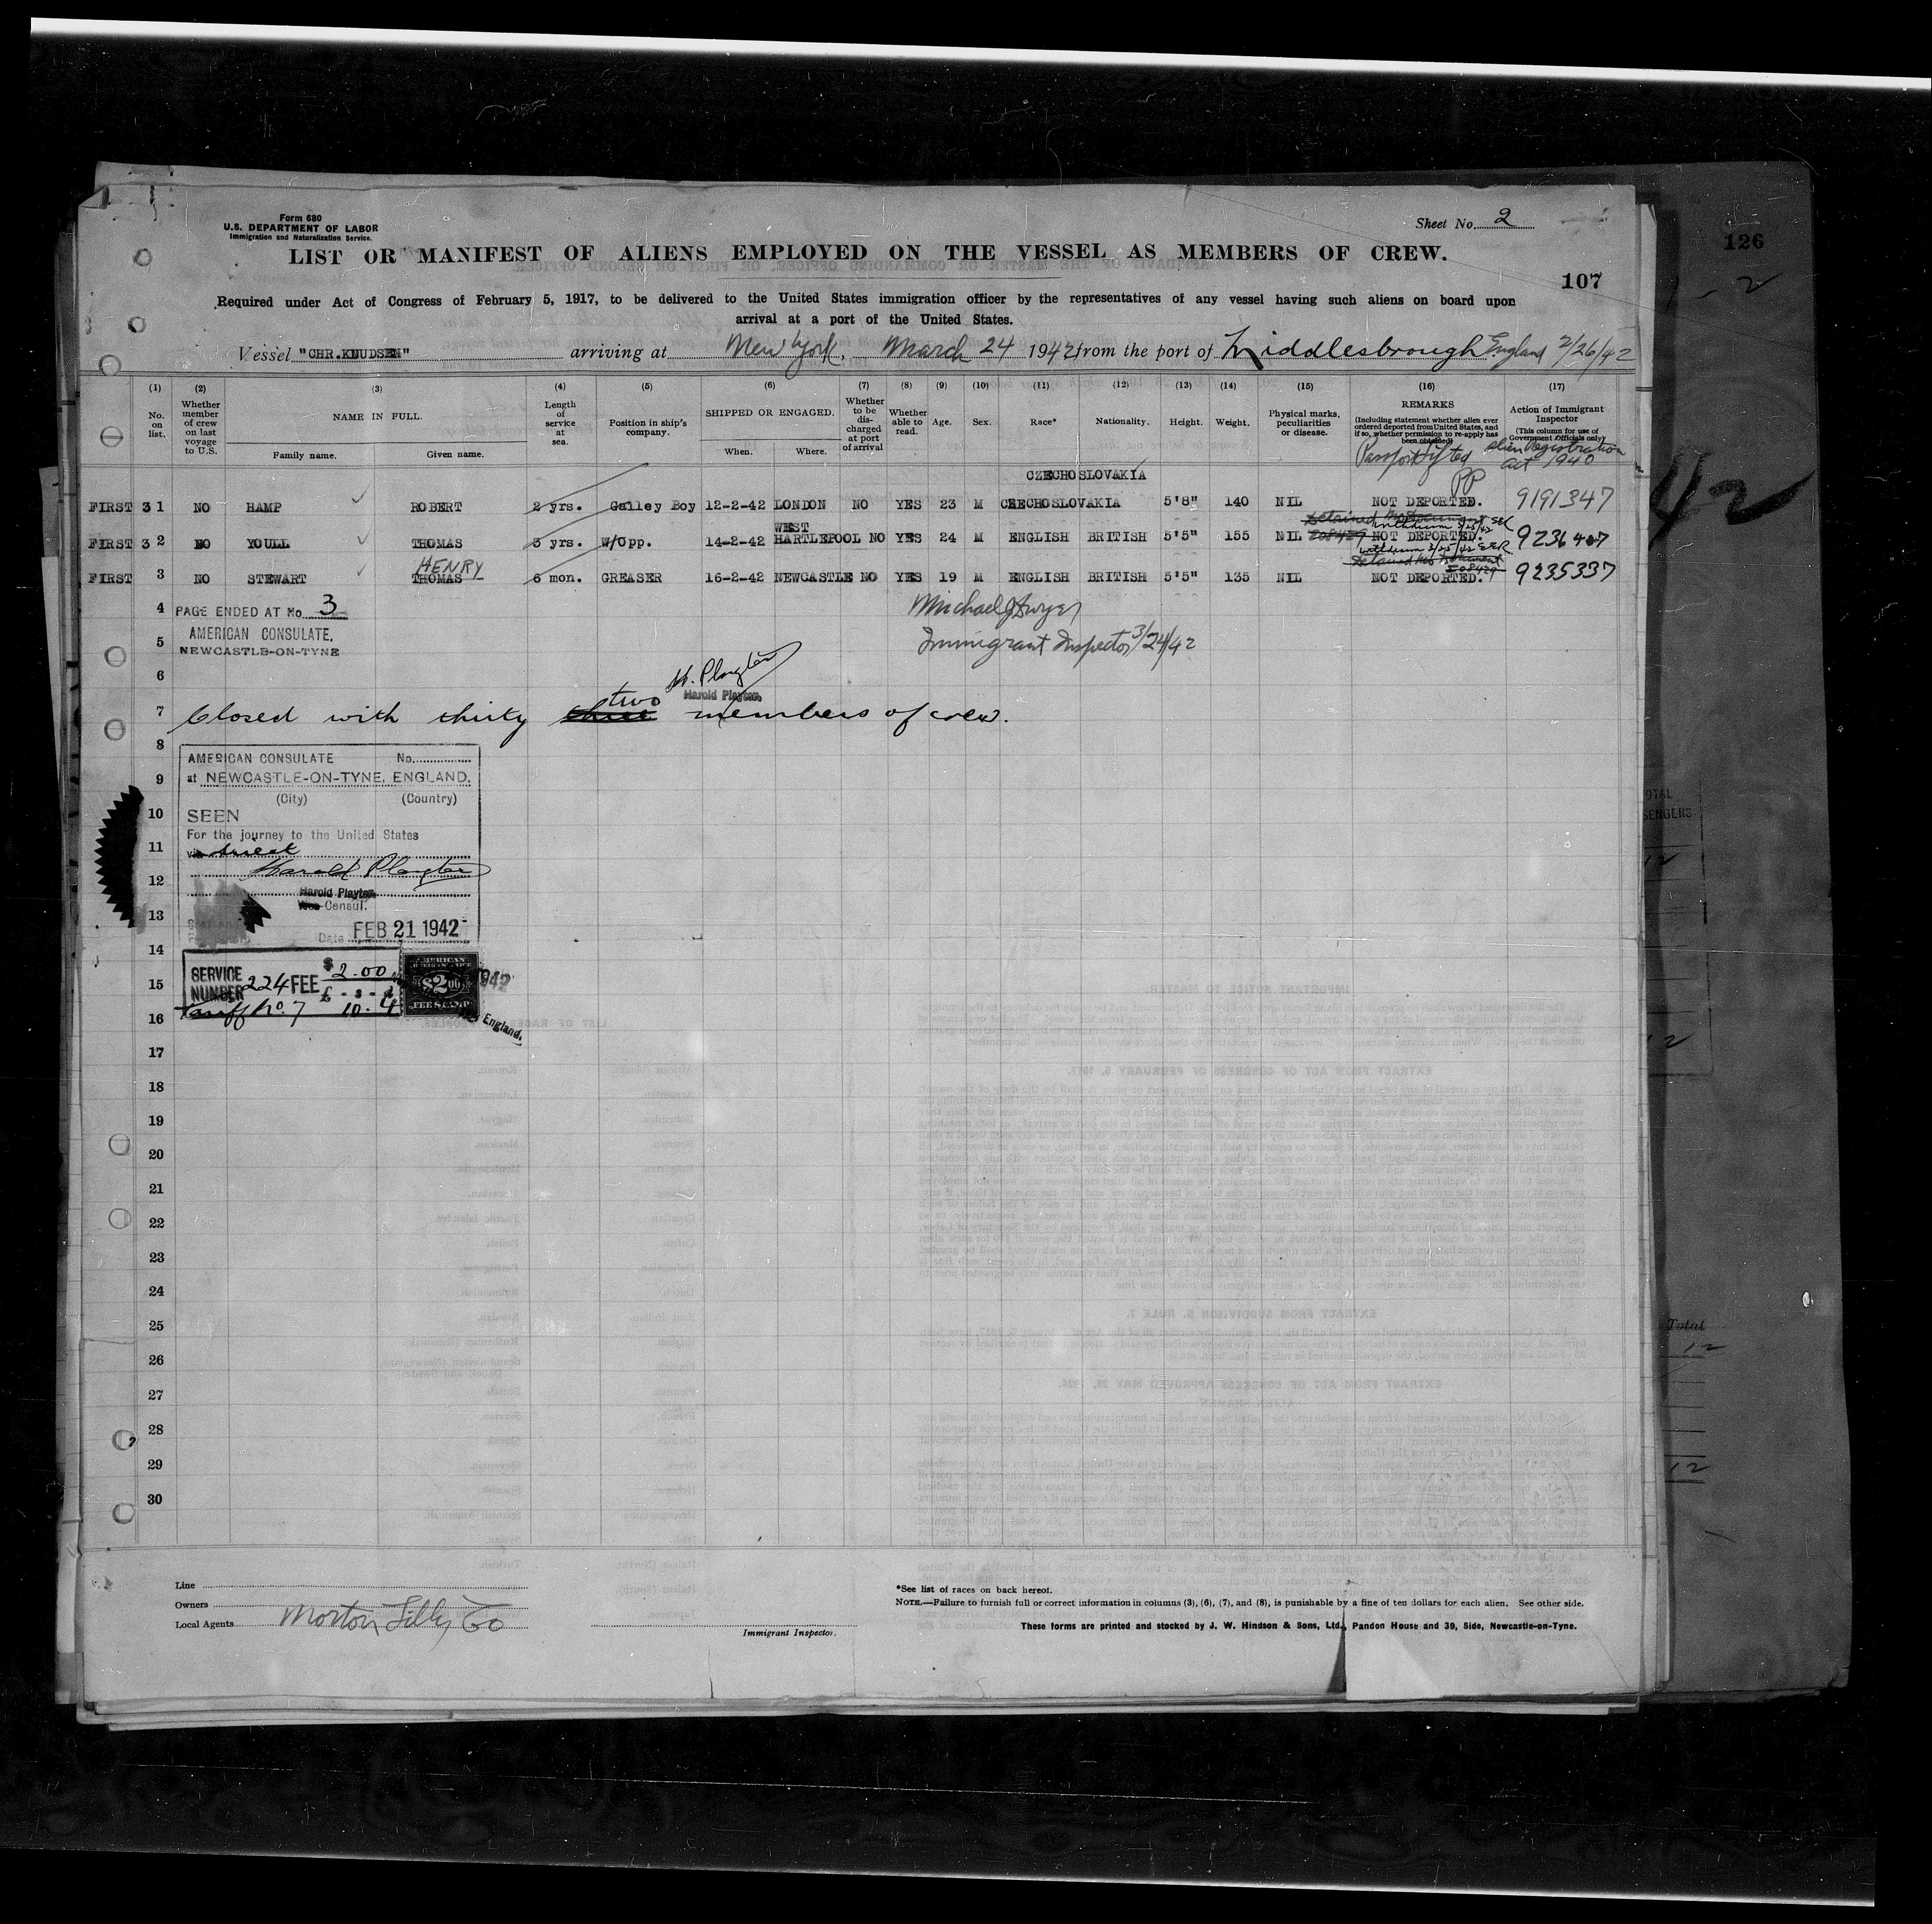 Form 680
U.S. DEPARTMENT OF LABOR
Immigration and Naturalization Service.
Sheet No. 2
126
LIST OR MANIFEST OF ALIENS EMPLOYED ON THE VESSEL AS MEMBERS OF CREW.
107
Required under Act of Congress of February 5, 1917, to be delivered to the United States immigration officer by the representatives of any vessel having such aliens on board upon
arrival at a port of the United States.
Vessel "CHR.KNUDSEN" arriving at New York, March 24 1942 from the port of Middlesbrough England 2/26/42
(1) (2) (3) (4) (5) (6) (7) (8) (9) (10) (11) (12) (13) (14) (15) (16) (17)
No. on list.
Whether member of crew on last voyage to U.S.
NAME IN FULL.
Family name. Given name.
Length of service at sea.
Position in ship's company.
SHIPPED OR ENGAGED.
When. Where.
Whether to be discharged at port of arrival
Whether able to read.
Age.
Sex.
Race*
Nationality.
Height.
Weight.
Physical marks, peculiarities or disease.
REMARKS
(Including statement whether alien ever ordered deported from United States, and if so, whether permission to re-apply has been obtained)
Action of Immigrant Inspector
(This column for use of Government Officials only)
Passport lifted Alien Registration
Act 1940
CZECHOSLOVAKIA
PP
FIRST 3 1 NO HAMP ROBERT 2 yrs. Galley Boy 12-2-42 LONDON NO YES 23 M CZECHOSLOVAKIA 5'8" 140 NIL NOT DEPORTED. 9191347
withdrawn 3/25/42
FIRST 3 2 NO YOULL THOMAS 3 yrs. W/Opp. 14-2-42 WEST HARTLEPOOL NO YES 24 M ENGLISH BRITISH 5'5" 155 NIL 208429 NOT DEPORTED. 9236407
withdrawn 3/25/42
HENRY
FIRST 3 NO STEWART THOMAS 6 mon. GREASER 16-2-42 NEWCASTLE NO YES 19 M ENGLISH BRITISH 5'5" 135 NIL NOT DEPORTED. 9235337
4 PAGE ENDED AT No. 3
Michael J Dwyer
5 AMERICAN CONSULATE,
NEWCASTLE-ON-TYNE
Immigrant Inspector 3/24/42
6
H. Playter
Harold Playter.
7 Closed with thirty three two members of crew.
8
AMERICAN CONSULATE No.
9 at NEWCASTLE-ON-TYNE, ENGLAND.
(City) (Country)
10 SEEN
For the journey to the United States
11 via direct
Harold Playter
12
Harold Playter
Vice Consul.
13
Date FEB 21 1942
14
SERVICE NUMBER 224 FEE $2.00
15
£ - s - d
Tariff No. 7 10. 4
AMERICAN
$2.00
FEE STAMP
1942
England.
16
17
18
19
20
21
22
23
24
25
26
27
28
29
30
Total
12
12
Line
Owners
Local Agents Morton Lilly Co
Immigrant Inspector.
*See list of races on back hereof.
NOTE.—Failure to furnish full or correct information in columns (3), (6), (7), and (8), is punishable by a fine of ten dollars for each alien. See other side.
These forms are printed and stocked by J. W. Hindson & Sons, Ltd., Pandon House and 39, Side, Newcastle-on-Tyne.